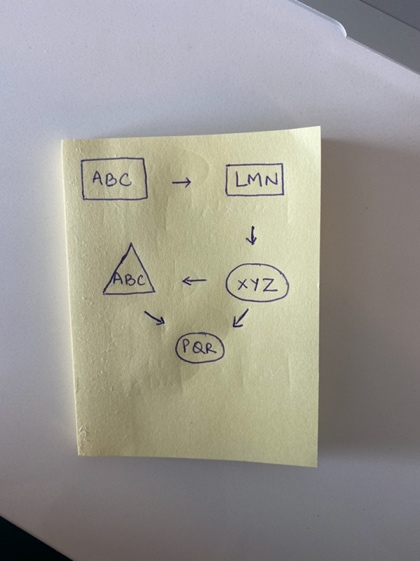 ABC → LMN
↓
ABC ← XYZ
↘ ↙
PQR